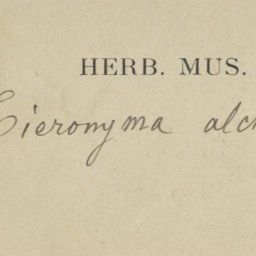 HERB. MUS.
Hieronyma alch